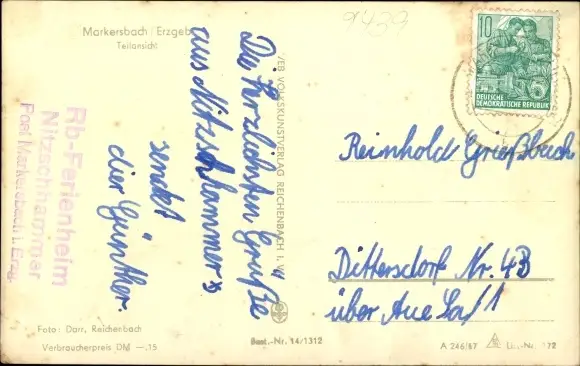 Markersbach / Erzgeb
Teilansicht
Rb-Ferienheim
Nitzschhammer
Post Markersbach i. Erzg.
Die herzlichsten Grüße
aus Nitzschhammer
sendet
dier Günther.
VEB VOLKSKUNSTVERLAG REICHENBACH I. V.
Foto: Darr, Reichenbach
Verbraucherpreis DM –.15
Best.-Nr. 14/1312
9439
10
DEUTSCHE
DEMOKRATISCHE REPUBLIK
Reinhold Grießbach
Dittersdorf Nr. 43
über Aue Sa/1
A 246/67